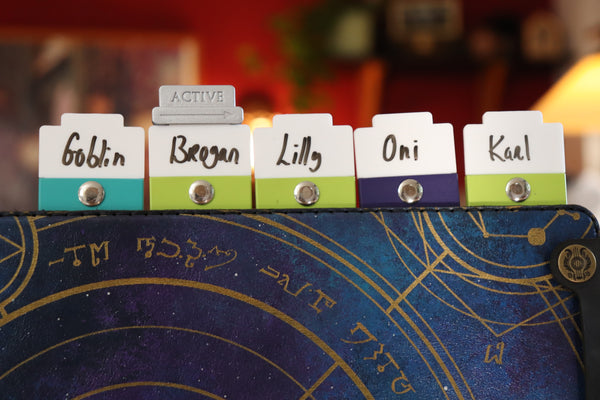 ACTIVE
Goblin
Bregan
Lilly
Oni
Kael